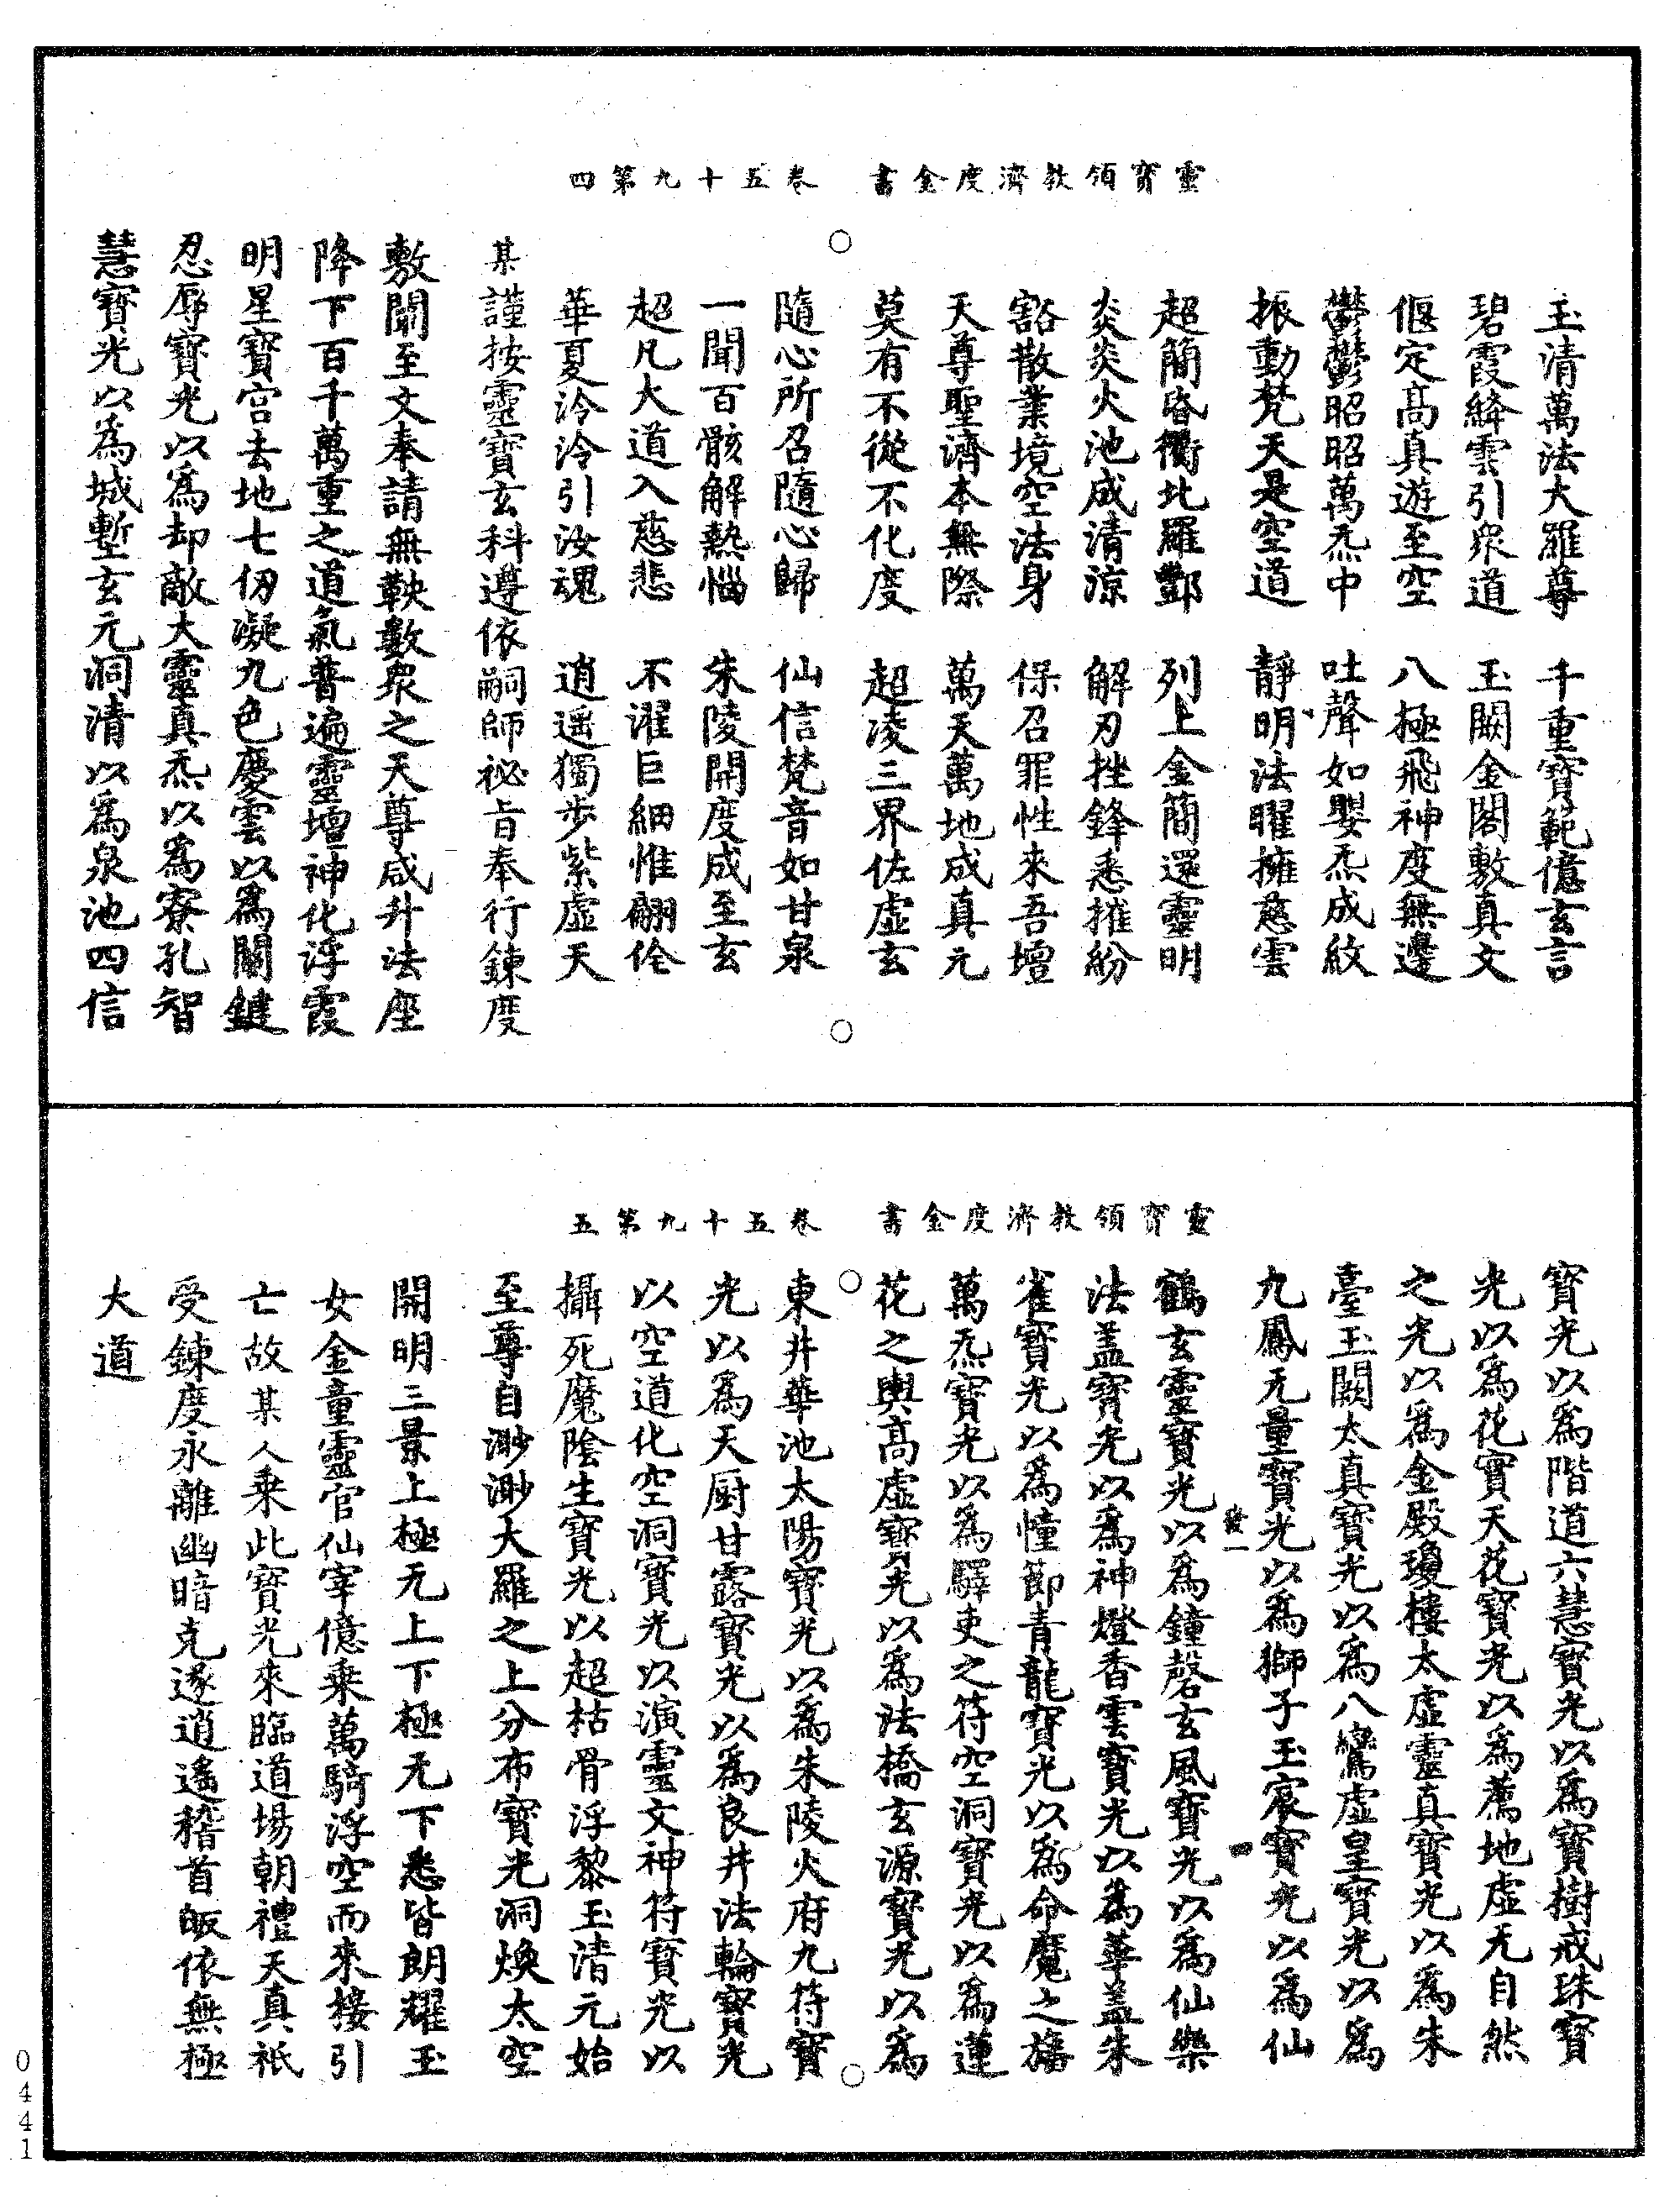 靈寶領教濟度金書　卷五十九第四
玉清萬法大羅尊　千重寶範億玄言
碧霞絳雲引衆道　玉闕金閣敷真文
偃定高真遊至空　八極飛神度無邊
鬱鬱昭昭萬炁中　吐聲如嬰炁成紋
振動梵天是空道　靜明法曜擁慈雲
超簡昏衢北羅酆　列上金簡還靈明
炎炎火池成清涼　解刃挫鋒悉摧紛
豁散業境空法身　保召罪性來吾壇
天尊聖濟本無際　萬天萬地成真元
莫有不從不化度　超凌三界佐虛玄
隨心所召隨心歸　仙信梵音如甘泉
一聞百骸解熱惱　朱陵開度成至玄
超凡大道入慈悲　不濯巨細惟翩佺
華夏泠泠引汝魂　逍遥獨步紫虛天
某謹按靈寶玄科遵依嗣師祕旨奉行鍊度
敷闡至文奉請無鞅數衆之天尊咸升法座
降下百千萬重之道氣普遍靈壇神化浮霞
明星寶宫去地七仞凝九色慶雲以爲關鍵
忍辱寶光以爲却敵大靈真炁以爲寮孔智
慧寶光以爲城塹玄元洞清以爲泉池四信
靈寶領教濟度金書　卷五十九第五
寶光以爲階道六慧寶光以爲寶樹戒珠寶
光以爲花實天花寶光以爲薦地虛无自然
之光以爲金殿瓊樓太虛靈真寶光以爲朱
臺玉闕太真寶光以爲八鸞虛皇寶光以爲
九鳳无量寶光以爲獅子玉宸寶光以爲仙
鶴玄靈寶光以爲鐘磬玄風寶光以爲仙樂
法盖寶光以爲神燈香雲寶光以爲華盖朱
雀寶光以爲幢節青龍寶光以爲命魔之旛
萬炁寶光以爲驛吏之符空洞寶光以爲蓮
花之輿高虛寶光以爲法橋玄源寶光以爲
東井華池太陽寶光以爲朱陵火府九符寶
光以爲天厨甘露寶光以爲良井法輪寶光
以空道化空洞寶光以演靈文神符寶光以
攝死魔陰生寶光以超枯骨浮黎玉清元始
至尊自渺渺大羅之上分布寶光洞煥太空
開明三景上極无上下極无下悉皆朗耀玉
女金童靈官仙宰億乘萬騎浮空而來接引
亡故某人乘此寶光來臨道場朝禮天真祇
受鍊度永離幽暗克遂逍遙稽首皈依無極
大道
0441